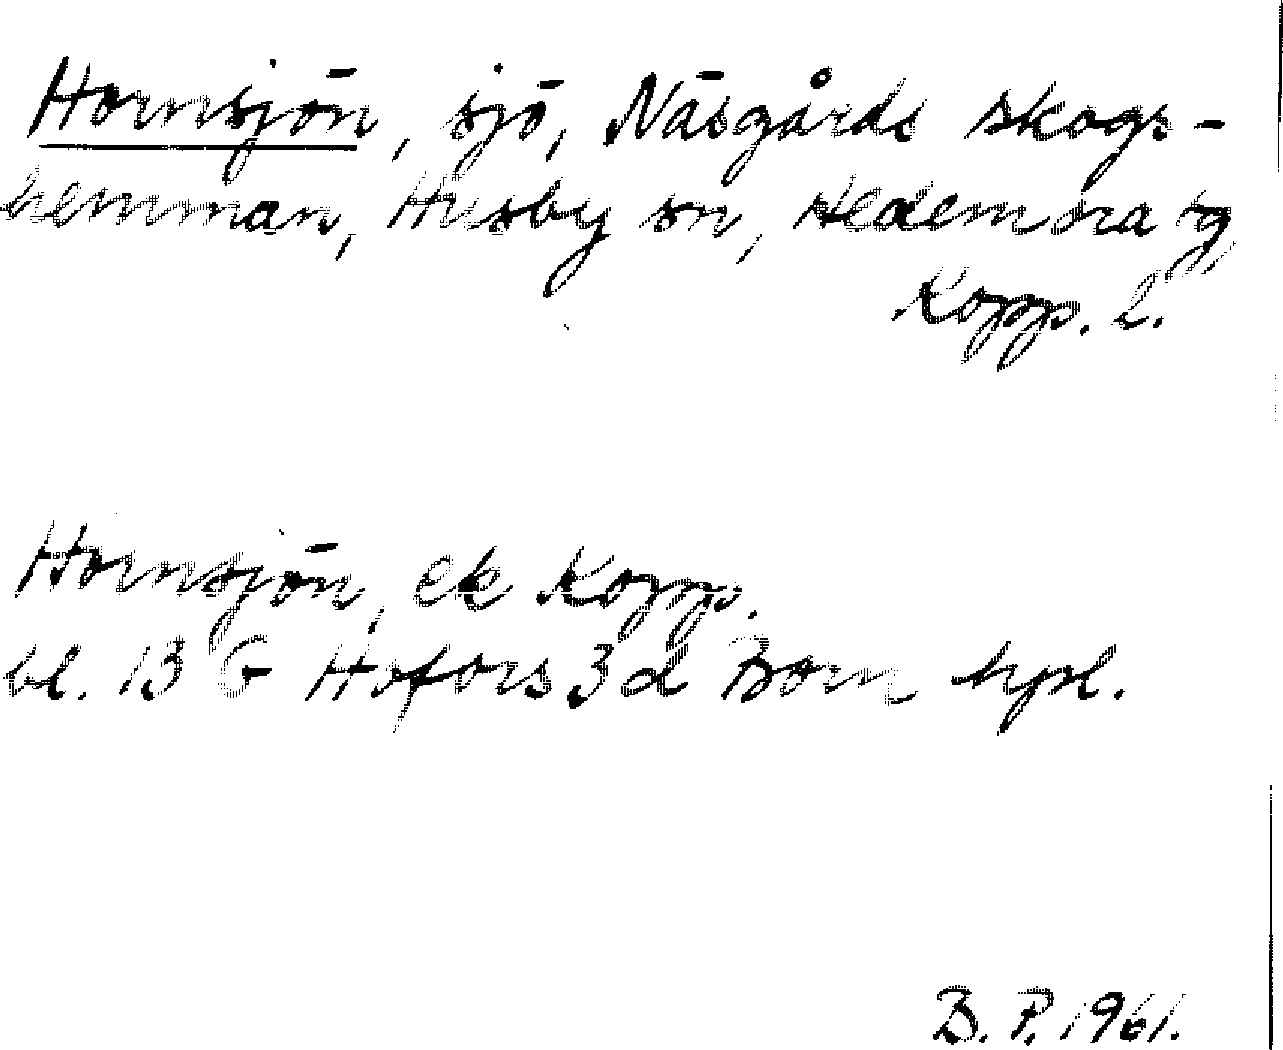 Hornsjön, sjö, Näsgårds skogs-
hemman, Husby sn, Hedemora tg,
Kopp. l.
Hornsjön, ek Kopp.
bl. 13 G Hofors 3d Born
B. P. 1961.